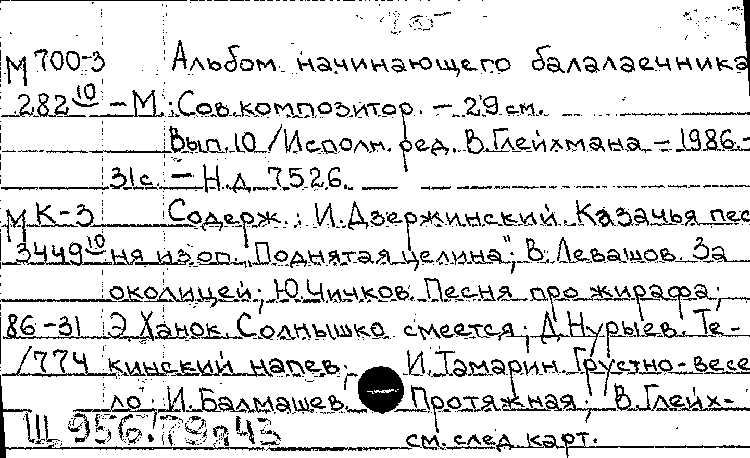 М 700-3 Альбом начинающего балалаечника
282 10 - М.: Сов. композитор. - 29 см.
Вып. 10 / Исполн. ред. В. Глейхмана - 1986. -
31 с. - Н.д. 7526.
М К-3 Содерж.: И. Дзержинский. Казачья пес
3449 10 ня из оп. "Поднятая целина"; В. Левашов. За
околицей; Ю. Чичков. Песня про жирафа;
86-31 Э. Ханок. Солнышко смеется; Д. Нурыев. Те-
/774 кинский напев; И. Тамарин. Грустно-весе
ло; И. Балмашев. Протяжная; В. Глейх-
Щ 956.79я43 см. след. карт.